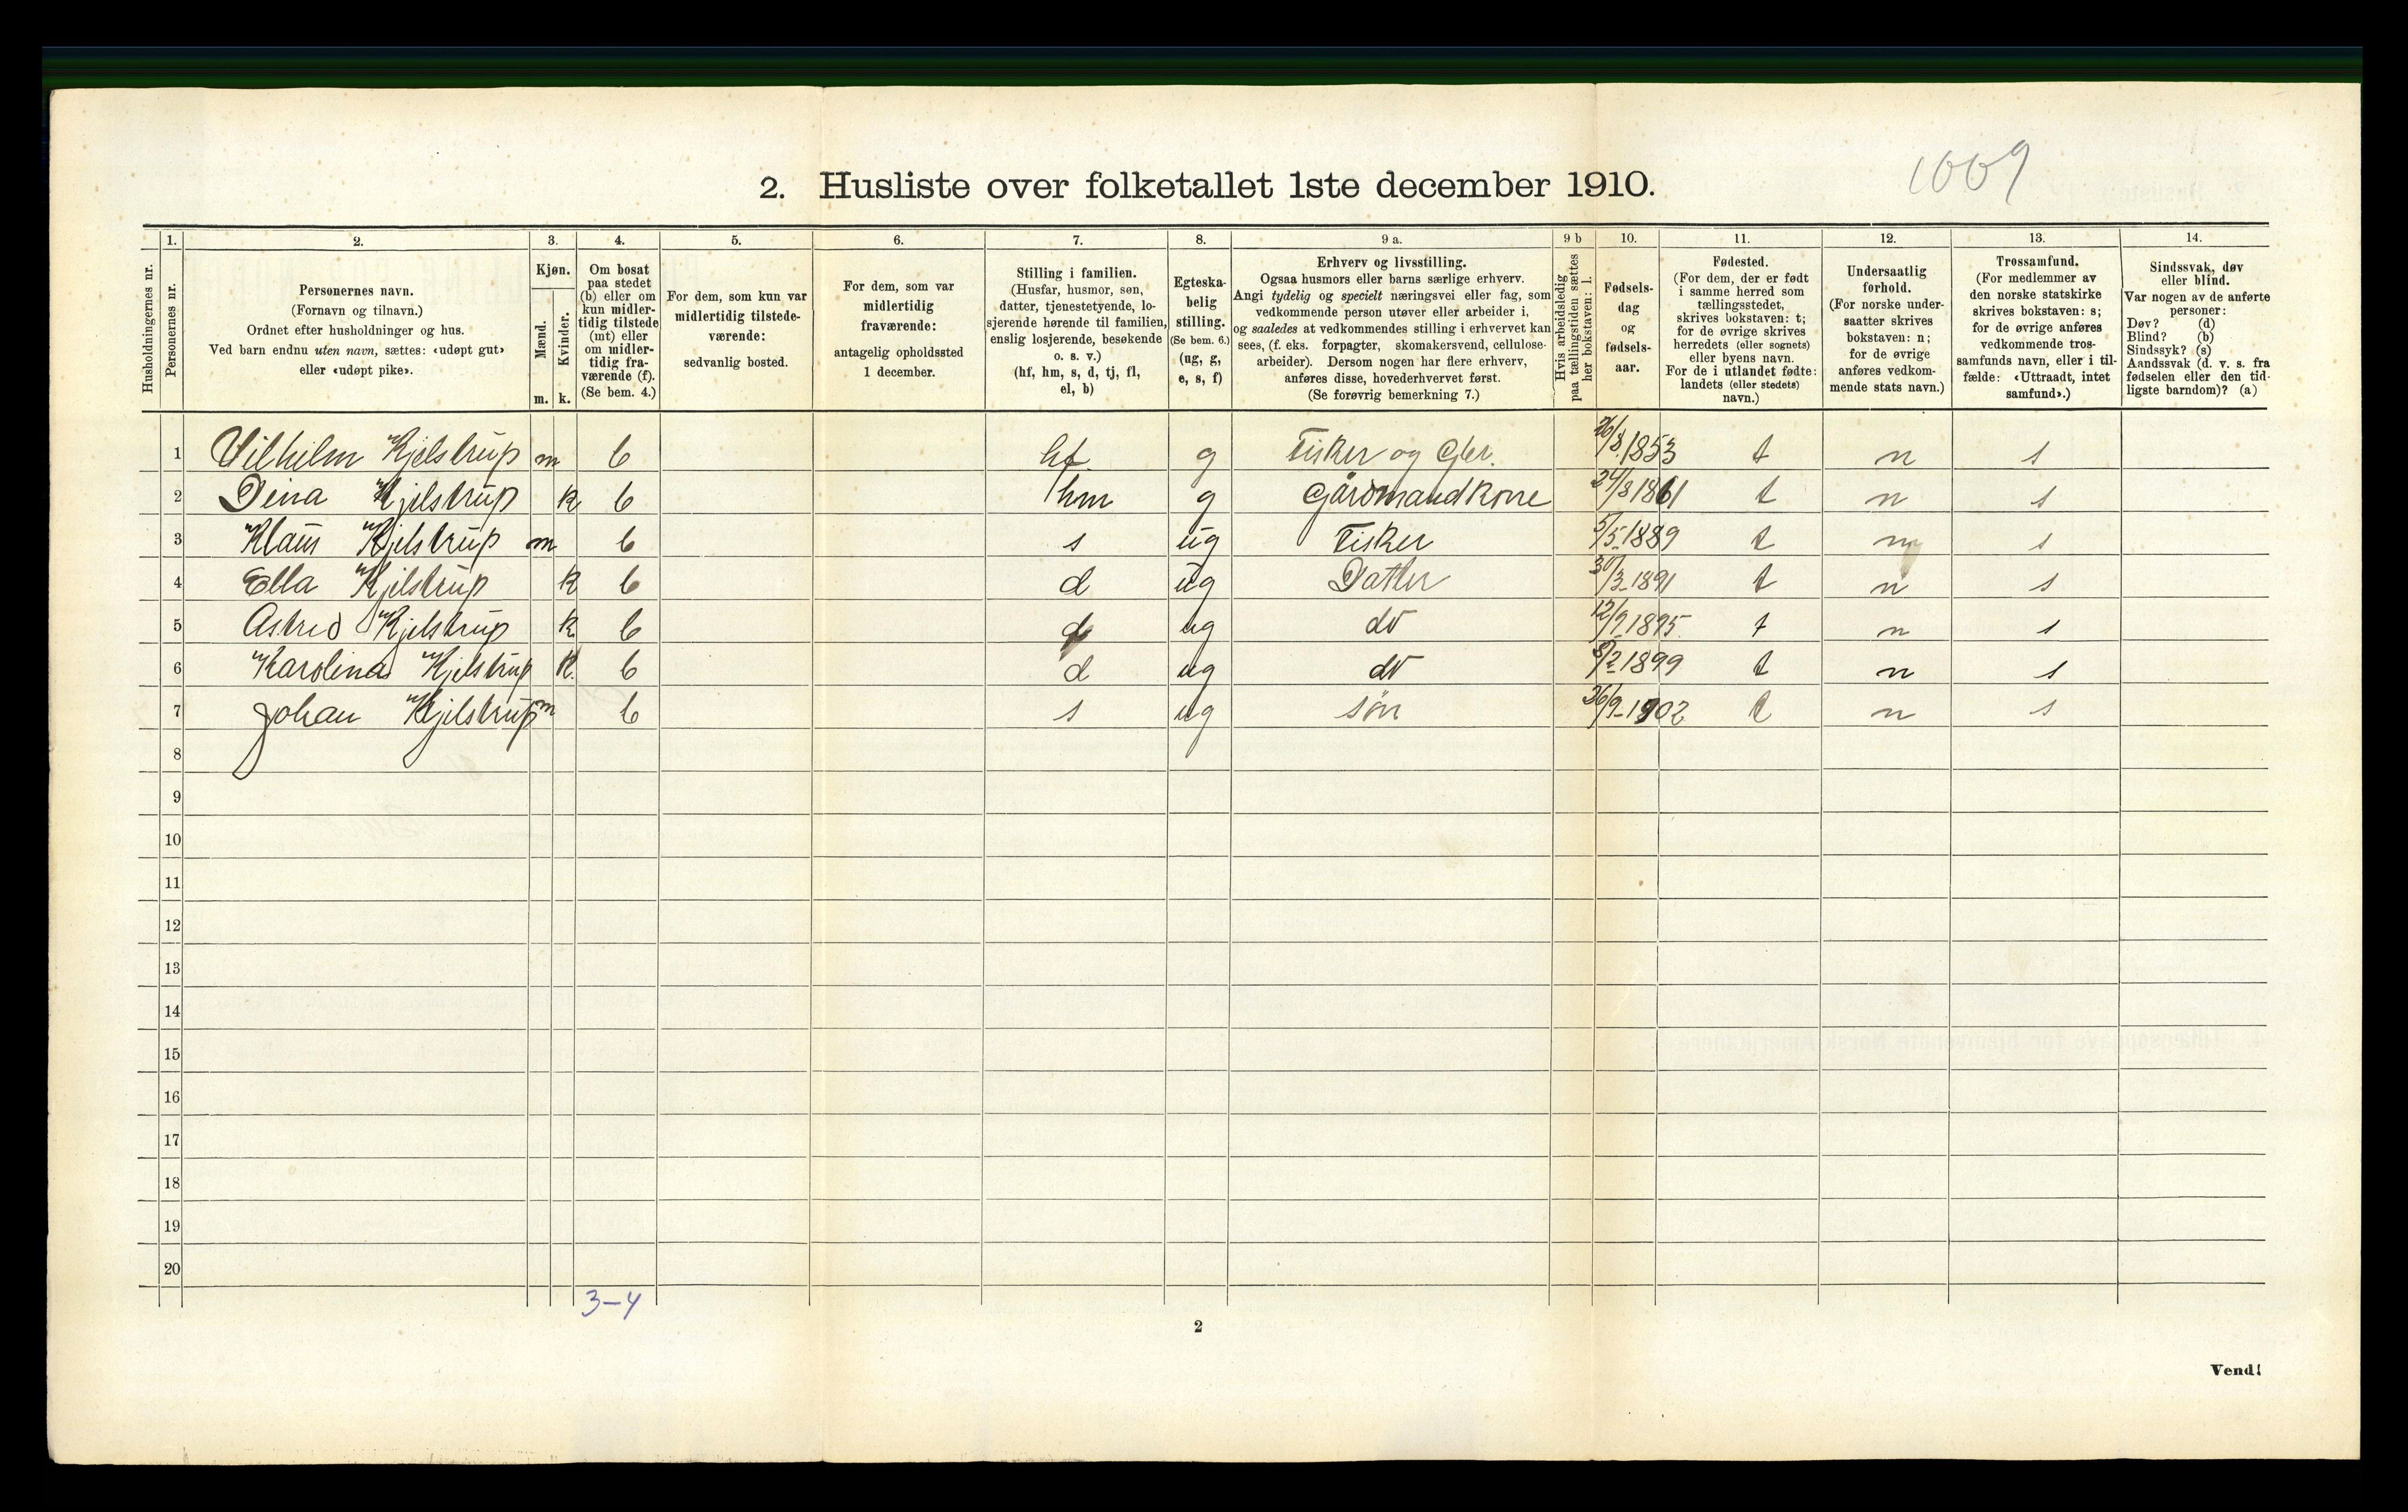 1009
2. Husliste over folketallet 1ste december 1910.
Husholdningernes nr.
1.
Personernes nr.
2.
Personernes navn.
(Fornavn og tilnavn.)
Ordnet efter husholdninger og hus.
Ved barn endnu uten navn, sættes: «udøpt gut»
eller «udøpt pike».
3.
Kjøn.
Mænd.
Kvinder.
m. k.
4.
Om bosat
paa stedet
(b) eller om
kun midler-
tidig tilstede
(mt) eller
om midler-
tidig fra-
værende (f).
(Se bem. 4.)
5.
For dem, som kun var
midlertidig tilstede-
værende:
sedvanlig bosted.
6.
For dem, som var
midlertidig
fraværende:
antagelig opholdssted
1 december.
7.
Stilling i familien.
(Husfar, husmor, søn,
datter, tjenestetyende, lo-
sjerende hørende til familien,
enslig losjerende, besøkende
o. s. v.)
(hf, hm, s, d, tj, fl,
el, b)
8.
Egteska-
belig
stilling.
(Se bem. 6.)
(ug, g,
e, s, f)
9 a.
Erhverv og livsstilling.
Ogsaa husmors eller barns særlige erhverv.
Angi tydelig og specielt næringsvei eller fag, som
vedkommende person utøver eller arbeider i,
og saaledes at vedkommendes stilling i erhvervet kan
sees, (f. eks. forpagter, skomakersvend, cellulose-
arbeider). Dersom nogen har flere erhverv,
anføres disse, hovederhvervet først.
(Se forøvrig bemerkning 7.)
9 b
Hvis arbeidsledig
paa tællingstiden sættes
her bokstaven: l.
10.
Fødsels-
dag
og
fødsels-
aar.
11.
Fødested.
(For dem, der er født
i samme herred som
tællingsstedet,
skrives bokstaven: t;
for de øvrige skrives
herredets (eller sognets)
eller byens navn.
For de i utlandet fødte:
landets (eller stedets)
navn.)
12.
Undersaatlig
forhold.
(For norske under-
saatter skrives
bokstaven: n;
for de øvrige
anføres vedkom-
mende stats navn.)
13.
Trossamfund.
(For medlemmer av
den norske statskirke
skrives bokstaven: s;
for de øvrige anføres
vedkommende tros-
samfunds navn, eller i til-
fælde: «Uttraadt, intet
samfund».)
14.
Sindssvak, døv
eller blind.
Var nogen av de anførte
personer:
Døv? (d)
Blind? (b)
Sindssyk? (s)
Aandssvak (d. v. s. fra
fødselen eller den tid-
ligste barndom)? (a)
1 Vilhilm Kjelstrup m b hf g Fisker og Gbr. 26/8 1853 t n s
2 Dina Kjelstrup k b hm g Gårdmandkone 24/8 1861 t n s
3 Klaus Kjelstrup m b s ug Fisker 5/5 1889 t n s
4 Ella Kjelstrup k b d ug Datter 30/3 1891 t n s
5 Astrid Kjelstrup k b d ug do 12/9 1895 t n s
6 Karolina Kjelstrup k. b d ug do 8/2 1899 t n s
7 Johan Kjelstrup m b s ug søn 26/9 1902 t n s
8
9
10
11
12
13
14
15
16
17
18
19
20
3-4
2
Vend!